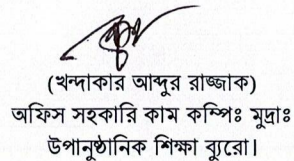 (খন্দাকার আব্দুর রাজ্জাক)
অফিস সহকারি কাম কম্পিঃ মুদ্রাঃ
উপানুষ্ঠানিক শিক্ষা ব্যুরো।